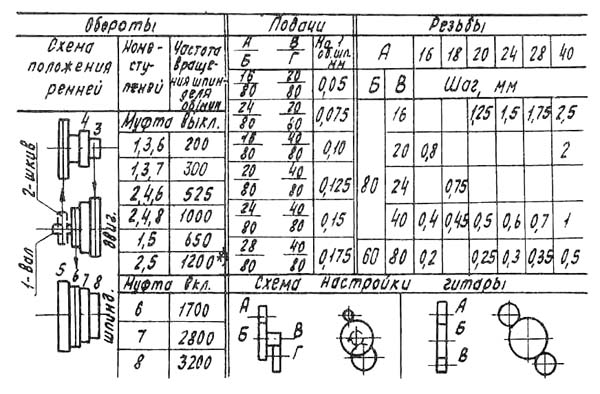 Обороты Подачи Резьбы
Схема положения ремней Номе- ступеней Частота вращения шпинделя об/мин А/Б В/Г На 1 об.шп. мм А 16 18 20 24 28 40
Б В Шаг, мм
16/80 20/80 0,05
24/80 20/60 0,075 16 1,25 1,5 1,75 2,5
Муфта выкл.
1,3,6 200 16/80 40/80 0,10 20 0,8 2
1,3,7 300 20/80 40/80 0,125 80 24 0,75
2,4,6 525
2,4,8 1000 24/80 40/80 0,15 40 0,4 0,45 0,5 0,6 0,7 1
1,5 650
2,5 1200*) 28/80 40/80 0,175 60 80 0,2 0,25 0,3 0,35 0,5
Муфта вкл. Схема настройки гитары
6 1700
7 2800
8 3200
4
3
2-шкив
1-вал
двиг.
5
6
7
8
шпинд.
А
Б В
Г
А
Б
В